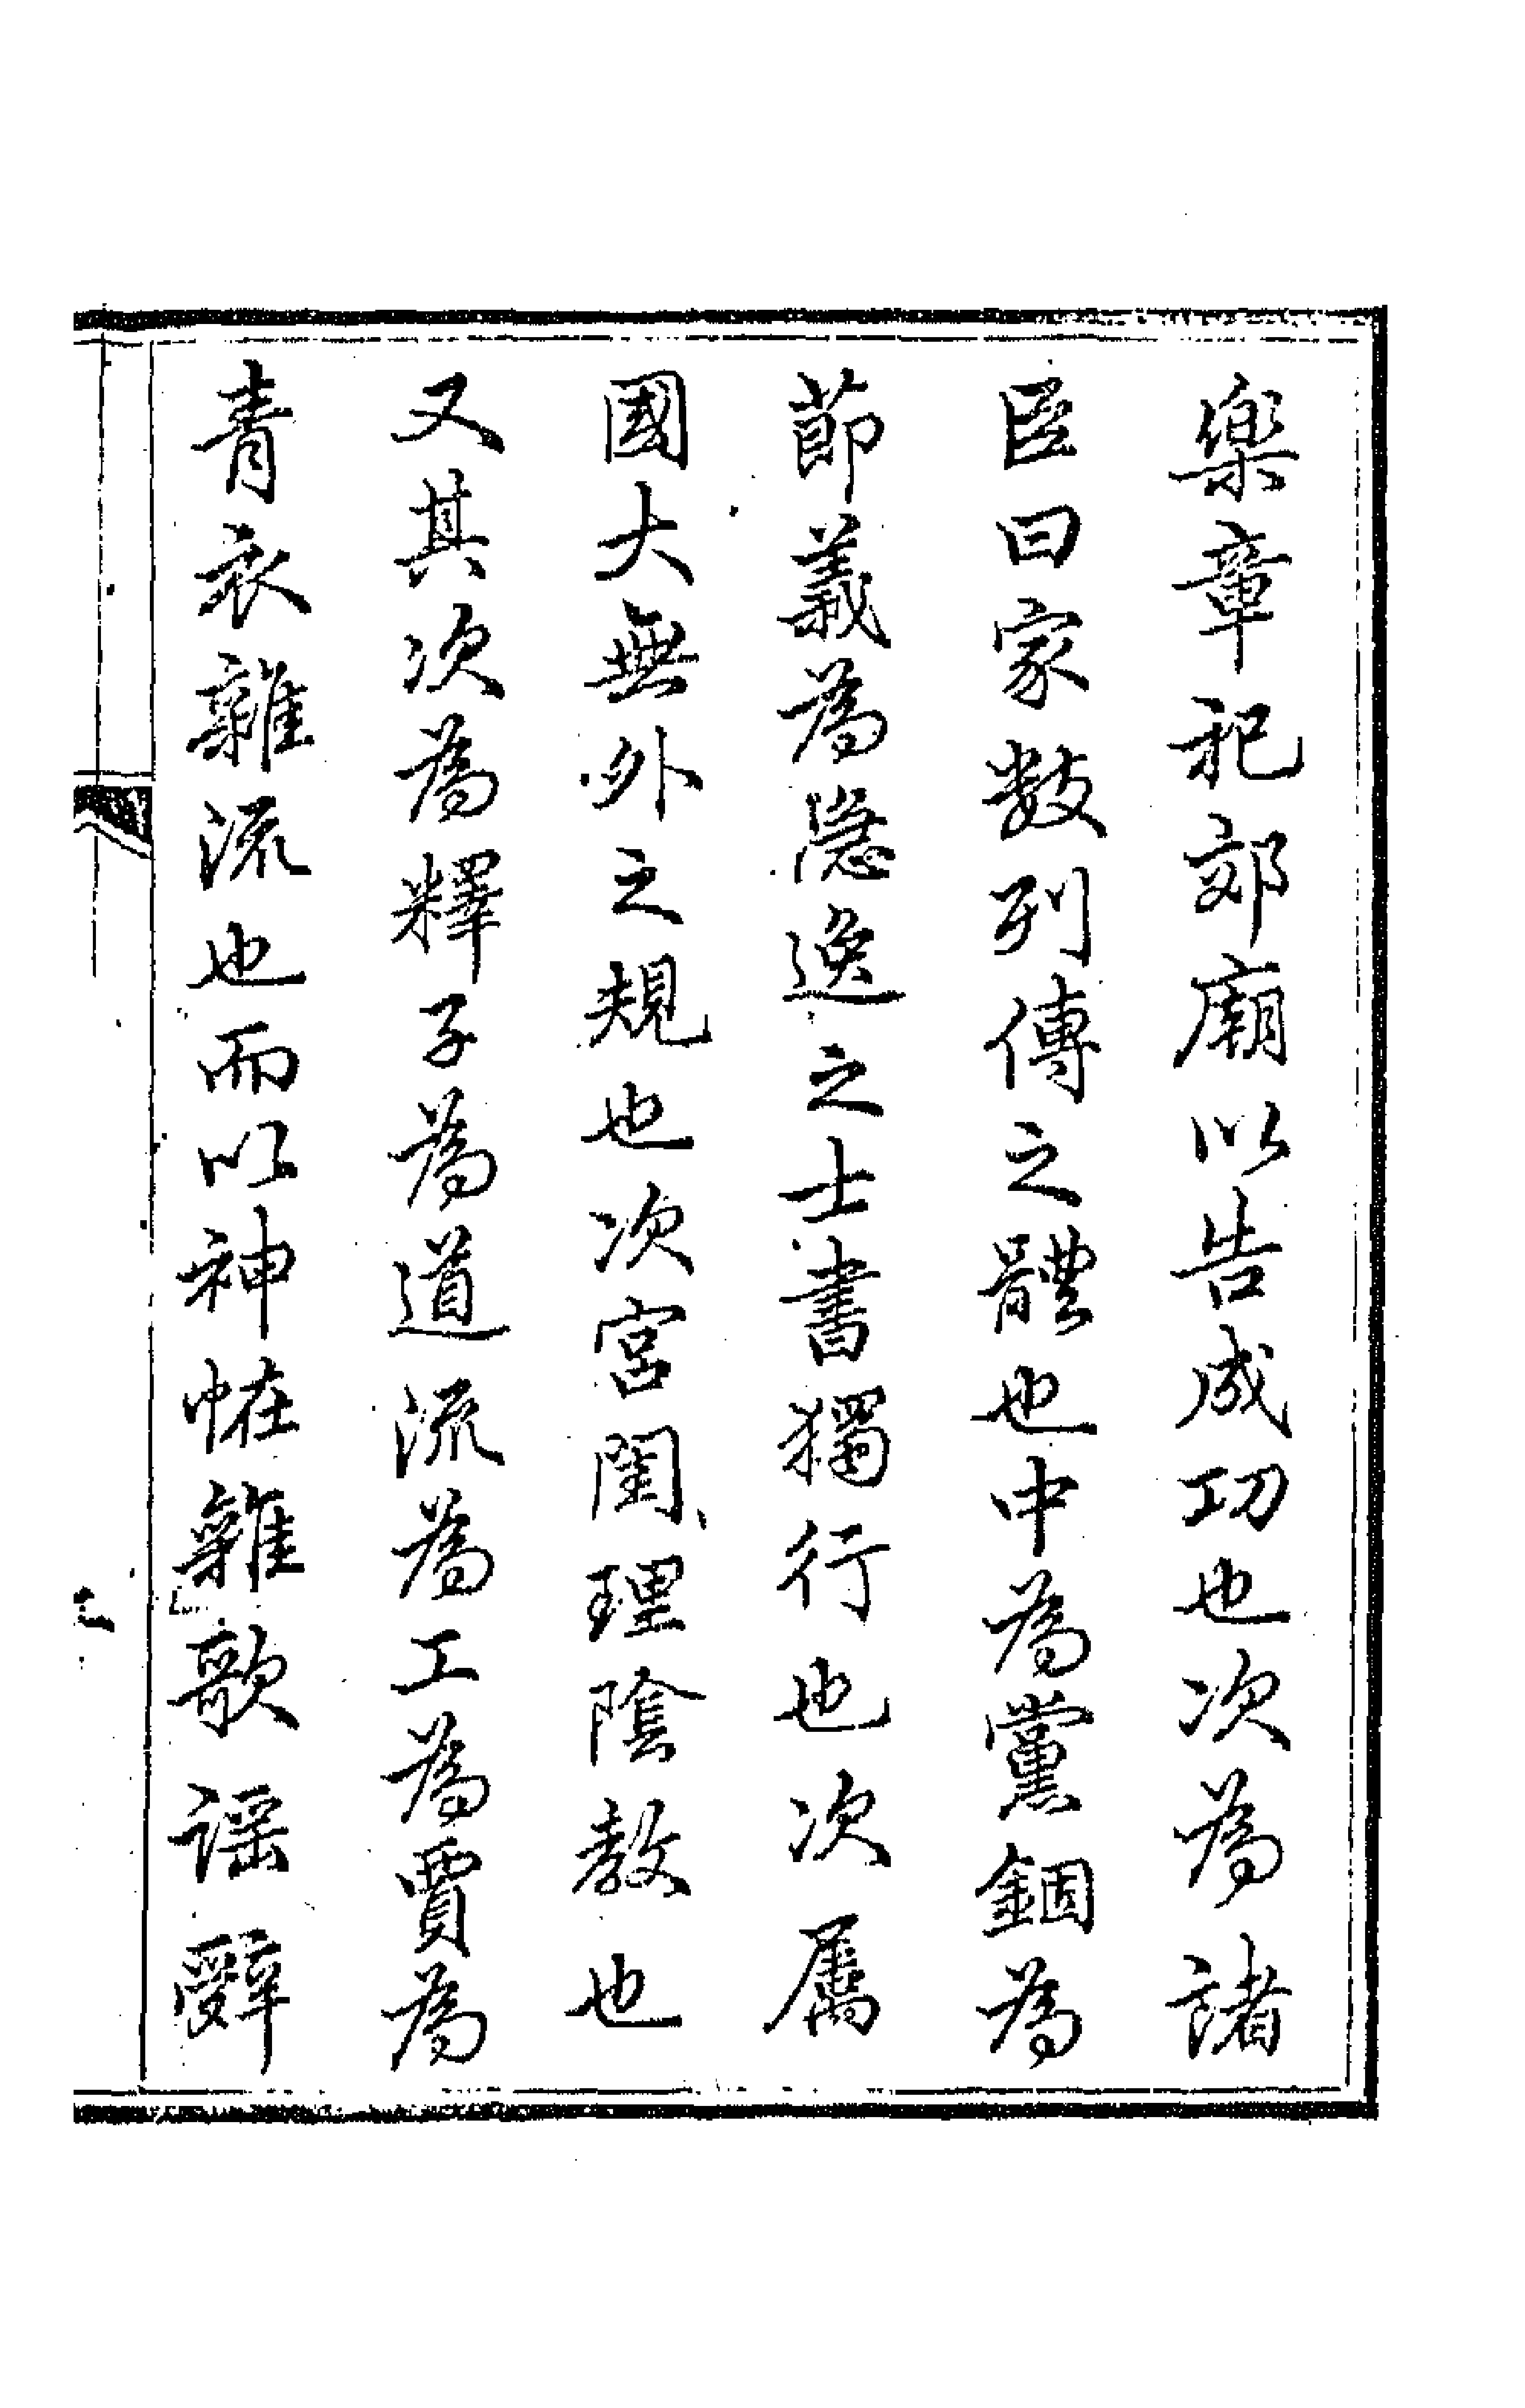 樂章祀郊廟以告成功也次為諸
臣曰家数列傳之體也中為黨錮為
節義為隱逸之士書獨行也次属
國大無外之規也次宮閨理陰教也
又其次為釋子為道流為工為賈為
青衣雜流也而以神恠雜歌謡辭